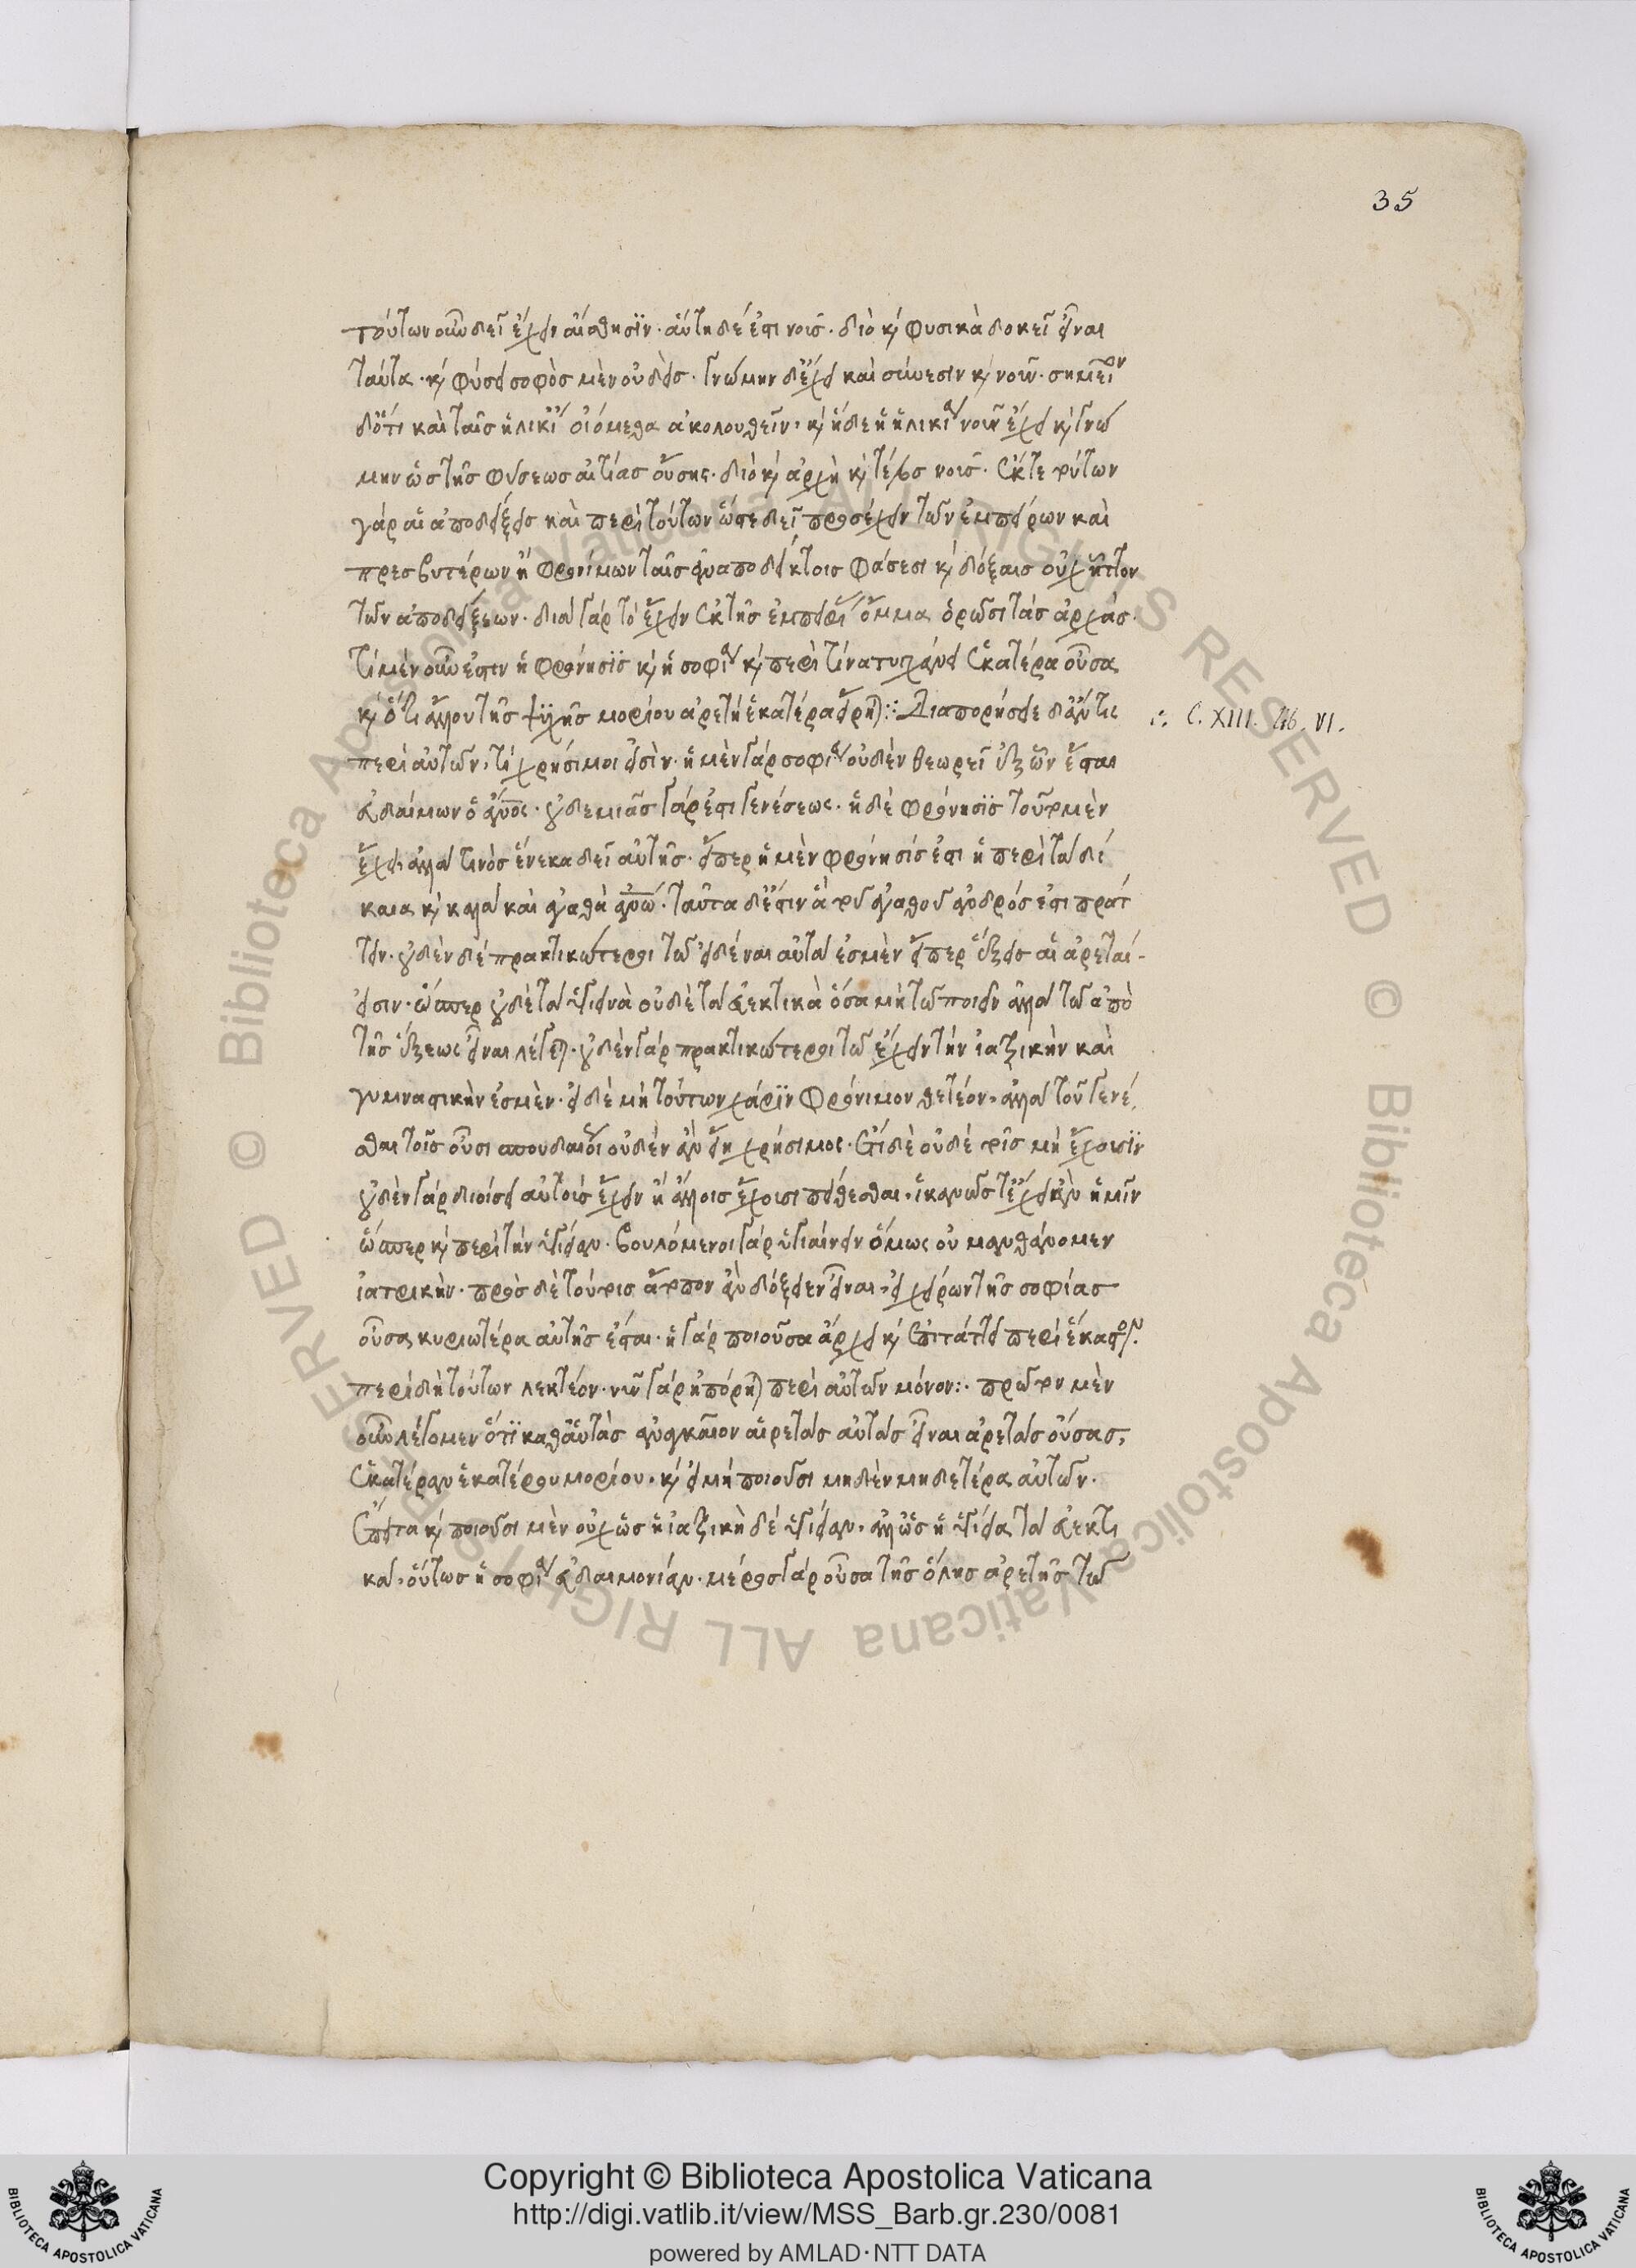 35
τούτων οὖν δεῖ ἔχειν αἴσθησϊν· αὕτη δέ ἐστι νοῦς· διὸ κ φυσικὰ δοκεῖ εἶναι
ταῦτα· κ φύσει σοφὸς μὲν οὐδεὶς· γνώμην δ ἔχει καὶ σύνεσιν κ νοῦν· σημεῖον
δ ὅτι καὶ ταῖς ἡλικίαις οἰόμεθα ἀκολουθεῖν· κ ἥδε ἡ ἡλικία νοῦν ἔχει κ γνώ
μην ὡς τῆς φύσεως αἰτίας οὔσης· διὸ κ ἀρχὴ κ τέλος νοῦς· ἔκ τε τούτων
γάρ αἱ ἀποδείξεις καὶ περὶ τούτων ὥστε δεῖ προσέχειν τῶν ἐμπείρων καὶ
πρεσβυτέρων ἢ φρονίμων ταῖς ἀναποδείκτοις φάσεσι κ δόξαις οὐχ ἧττον
τῶν ἀποδείξεων· διὰ γάρ τὸ ἔχειν ἐκ τῆς ἐμπειρίας ὄμμα ὁρῶσι τὰς ἀρχάς·
τί μὲν οὖν ἐστιν ἡ φρόνησϊς κ ἡ σοφία κ περὶ τίνα τυγχάνει ἑκατέρα οὖσα
κ ὅτι ἄλλου τῆς ψυχῆς μορίου ἀρετὴ ἑκατέρα εἴρηται:· Διαπορήσειε δ ἄν τις
:· C. XIII. lib. VI.
περὶ αὐτῶν, τί χρήσιμοι εἰσὶν· ἡ μὲν γάρ σοφία οὐδὲν θεωρεῖ ἐξ ὧν ἔσται
εὐδαίμων ὁ ἄνος· οὐδεμιᾶς γάρ ἐστι γενέσεως· ἡ δὲ φρόνησϊς τοῦτο μὲν
ἔχει, ἀλλὰ τινὸς ἕνεκα δεῖ αὐτῆς· εἴπερ ἡ μὲν φρόνησίς ἐστι ἡ περὶ τὰ δί
καια κ καλὰ καὶ ἀγαθὰ ἀνω· ταῦτα δ ἐστὶν ἃ τοῦ ἀγαθοῦ ἀνδρός ἐστι πράτ
τειν· οὐδὲν δέ πρακτικώτεροι τῷ εἰδέναι αὐτὰ ἐσμὲν εἴπερ ἕξεις αἱ ἀρεταί
εἰσιν· ὥσπερ οὐδὲ τὰ ὑγιεινὰ οὐδὲ τὰ εὐεκτικὰ ὅσα μὴ τῷ ποιεῖν ἀλλὰ τῷ ἀπὸ
τῆς ἕξεως εἶναι λέγεται· οὐδὲν γάρ πρακτικώτεροι τῷ ἔχειν τὴν ἰατρικὴν καὶ
γυμναστικὴν ἐσμὲν· εἰ δὲ μὴ τούτων χάριν φρόνιμον θετέον, ἀλλὰ τοῦ γενέ
σθαι τοῖς οὖσι σπουδαίοις οὐδὲν ἂν εἴη χρήσιμος· ἔτι δὲ οὐδέ τοῖς μὴ ἔχουσϊν
οὐδὲν γάρ διοίσει αὐτοὺς ἔχειν ἢ ἄλλοις ἔχουσι πείθεσθαι, ἱκανῶς τ ἔχει ἂν ἡμῖν
ὥσπερ κ περὶ τὴν ὑγίειαν· βουλόμενοι γάρ ὑγιαίνειν ὅμως οὐ μανθάνομεν
ἰατρικὴν· πρὸς δὲ τούτοις ἄτοπον ἂν δόξειεν εἶναι, εἰ χείρων τῆς σοφίας
οὖσα κυριωτέρα αὐτῆς ἔσται· ἡ γάρ ποιοῦσα ἄρχει κ ἐπιτάττει περὶ ἕκαστον·
περὶ δὴ τούτων λεκτέον· νῦν γάρ ἠπόρηται περὶ αὐτῶν μόνον:· πρῶτον μὲν
οὖν λέγομεν ὅτϊ καθ αὑτὰς ἀναγκαῖον αἱρετὰς αὐτὰς εἶναι ἀρετὰς οὔσας,
ἑκατέραν ἑκατέρου μορίου, κ εἰ μὴ ποιοῦσι μηδὲν μηδετέρα αὐτῶν·
ἔπειτα κ ποιοῦσι μὲν οὐχ ὡς ἡ ἰατρικὴ δέ ὑγίειαν, ἀλλ ὡς ἡ ὑγίεια τὰ εὐεκτι
κά, οὕτως ἡ σοφία εὐδαιμονίαν· μέρος γάρ οὖσα τῆς ὅλης ἀρετῆς τῷ
© Biblioteca Apostolica Vaticana ALL RIGHTS RESERVED © Biblioteca Apostolica Vaticana ALL RIGHTS RESERVED
Copyright © Biblioteca Apostolica Vaticana
http://digi.vatlib.it/view/MSS_Barb.gr.230/0081
powered by AMLAD·NTT DATA
BIBLIOTECA APOSTOLICA VATICANA
BIBLIOTECA APOSTOLICA VATICANA